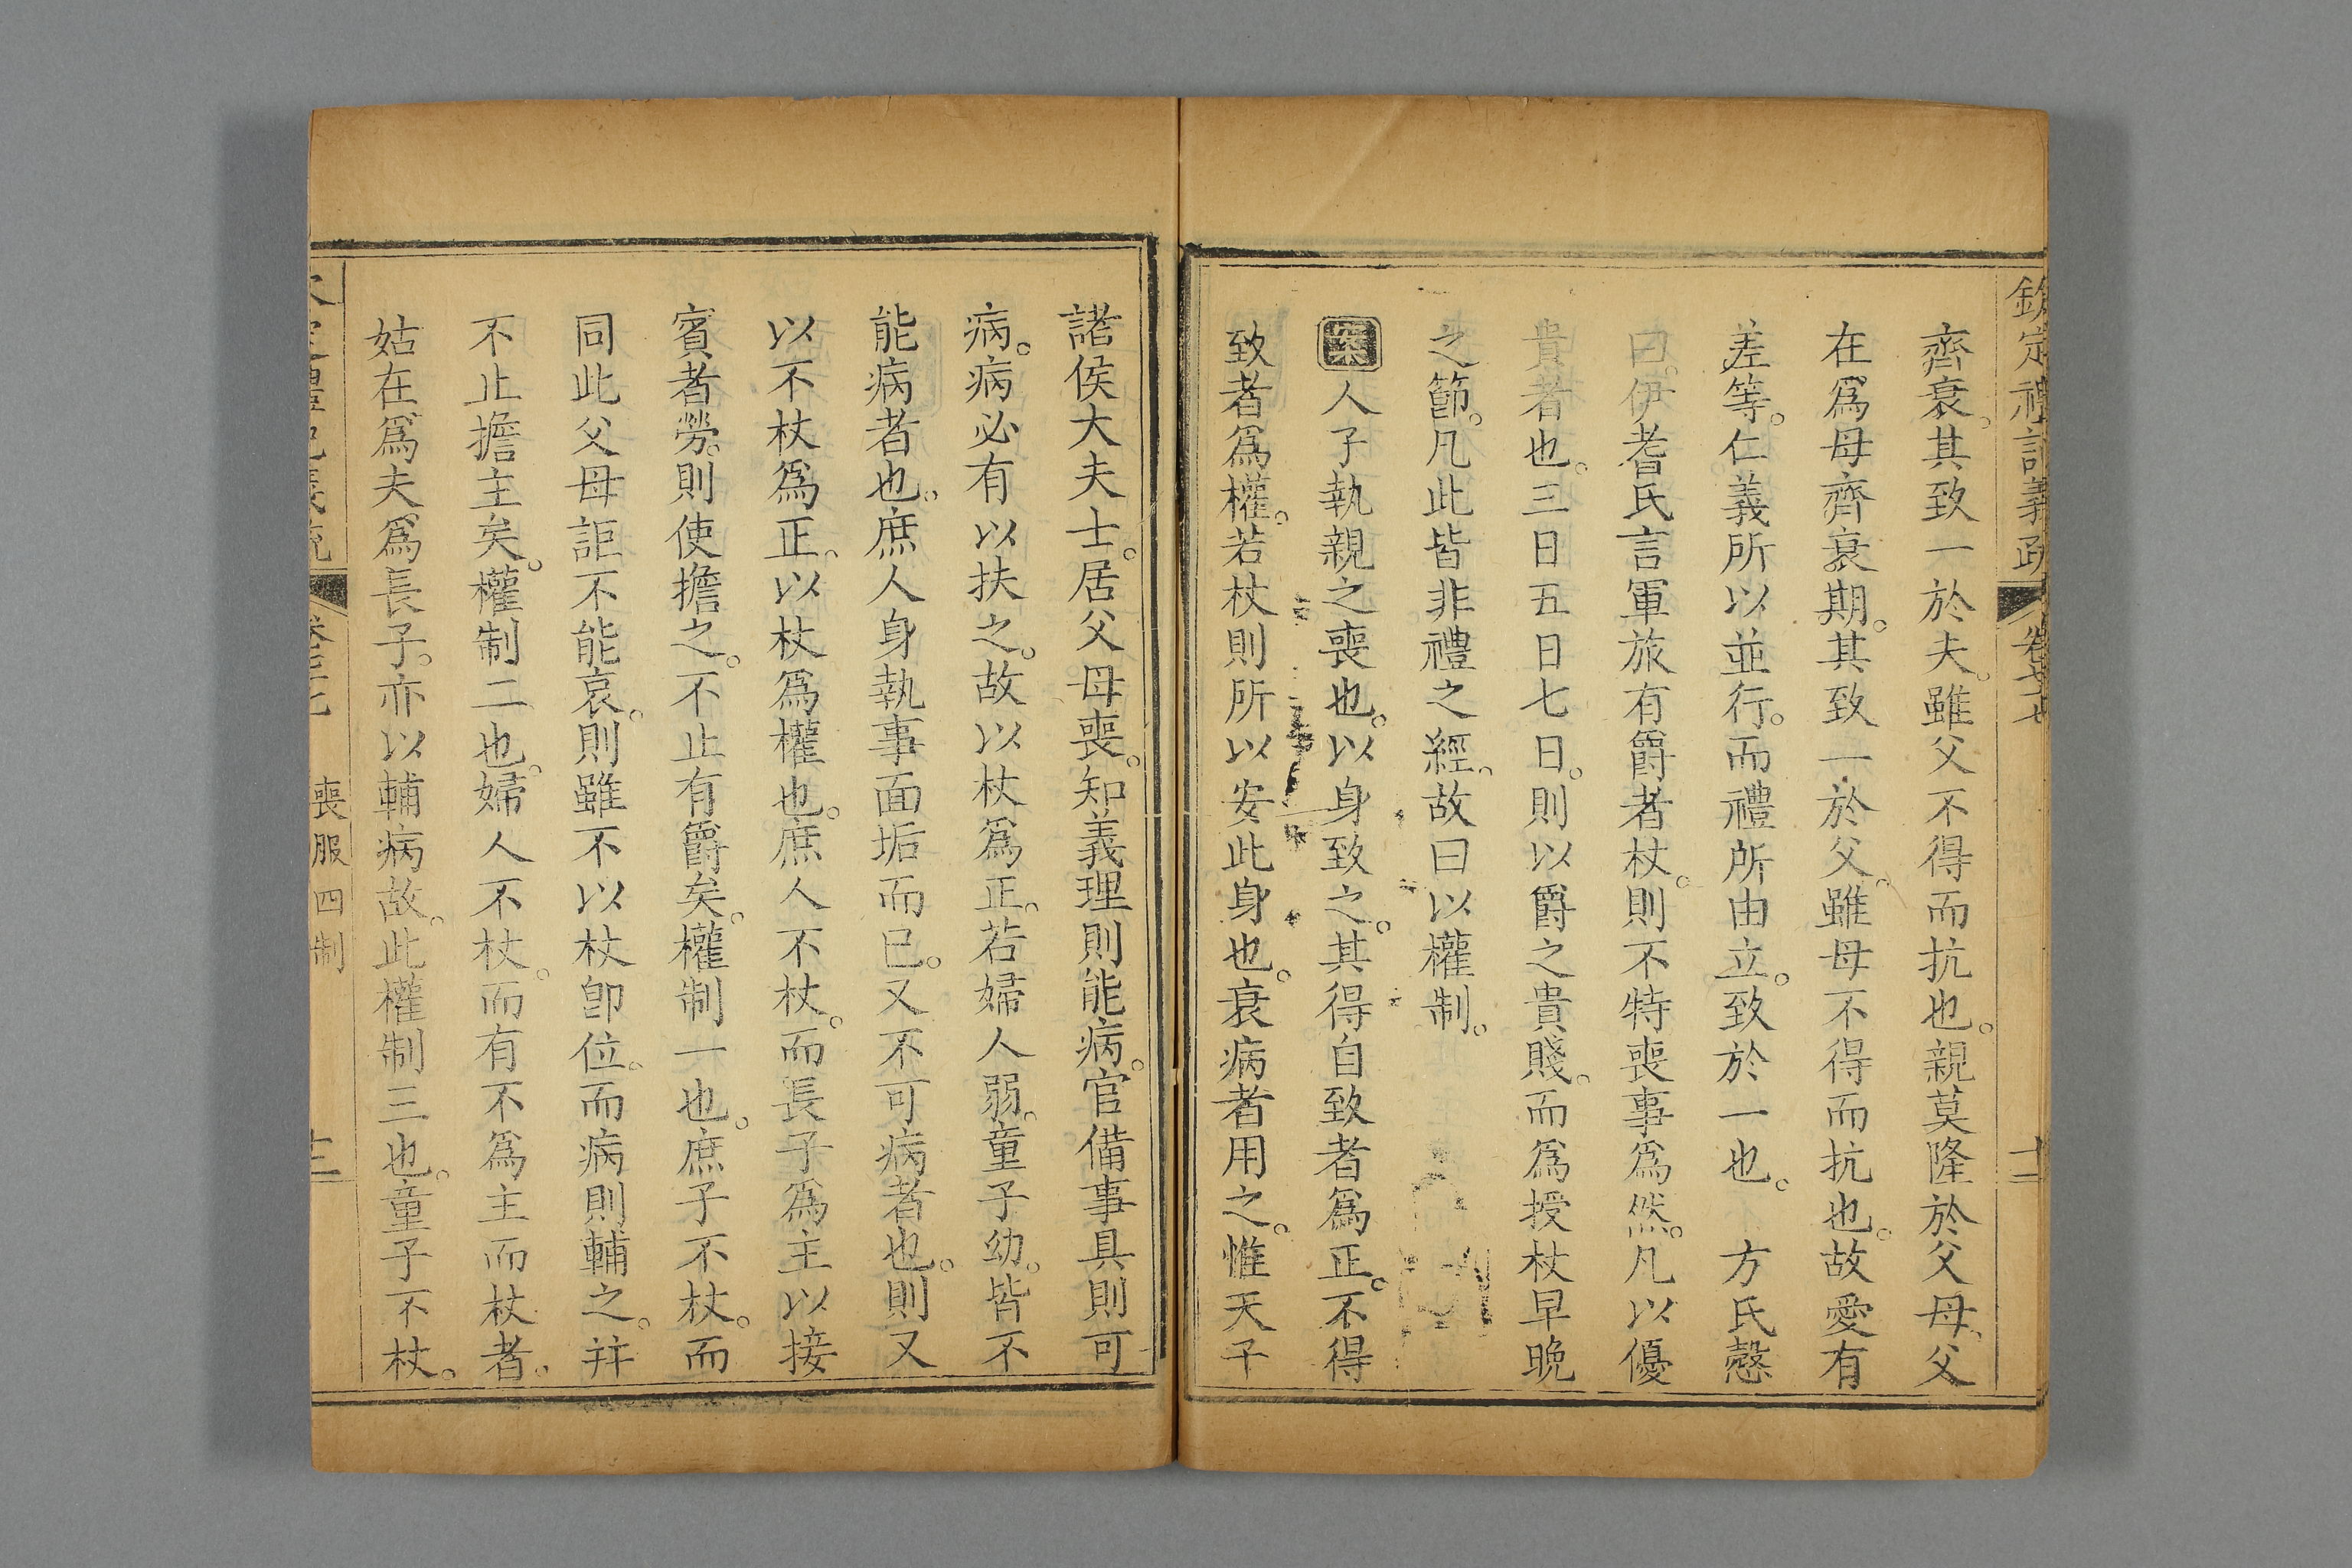 欽定禮記義疏 卷七十七 十二
齊衰。其致一於夫。雖父不得而抗也。親莫隆於父母、父
在爲母齊衰期。其致一於父。雖母不得而抗也。故愛有
差等。仁義所以並行。而禮所由立。致於一也。 方氏慤
曰。伊耆氏言軍旅有爵者杖。則不特喪事爲然。凡以優
貴者也。三日五日七日。則以爵之貴賤。而爲授杖早晚
之節。凡此皆非禮之經。故曰以權制。
案人子執親之喪也。以身致之。其得自致者爲正。不得
致者爲權。若杖則所以安此身也。衰病者用之。惟天子
諸侯大夫士。居父母喪。知義理則能病。官備事具則可
病。病必有以扶之。故以杖爲正。若婦人弱。童子幼。皆不
能病者也。庶人身執事面垢而已。又不可病者也。則又
以不杖爲正。以杖爲權也。庶人不杖。而長子爲主以接
賓者勞。則使擔之。不止有爵矣。權制一也。庶子不杖。而
同此父母詎不能哀。則雖不以杖卽位。而病則輔之。并
不止擔主矣。權制二也。婦人不杖。而有不爲主而杖者。
姑在爲夫。爲長子。亦以輔病故。此權制三也。童子不杖。
喪服四制